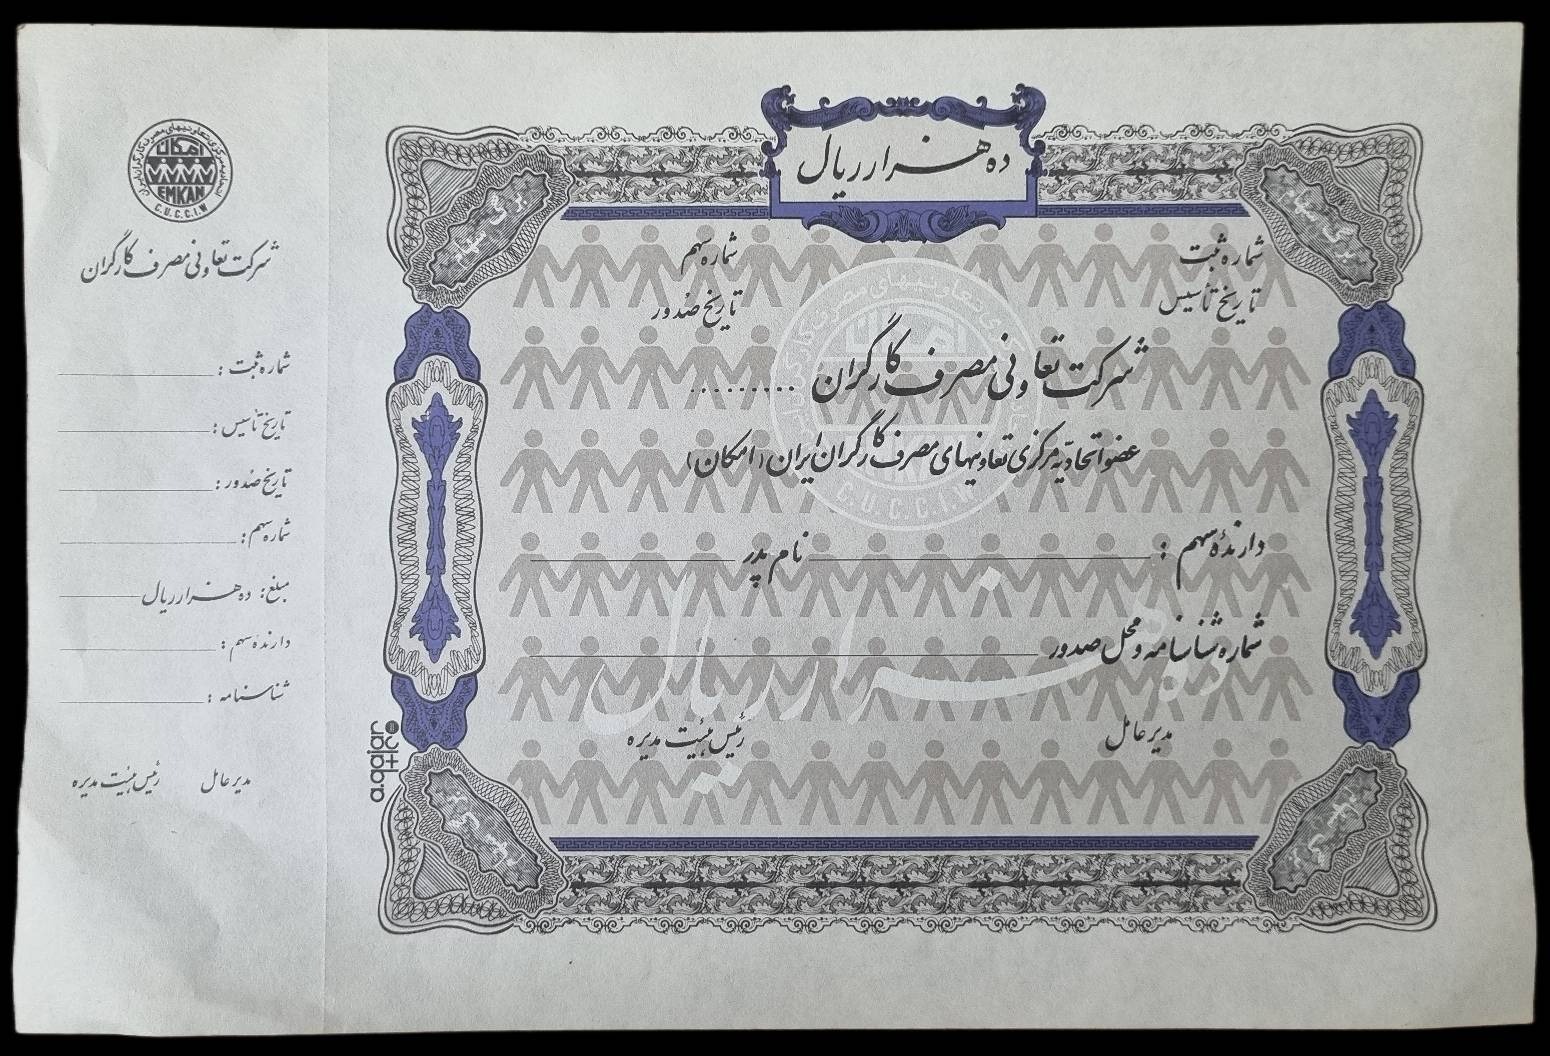 ده هزار ریال
برگ سهام
برگ سهام
شماره ثبت
شماره سهم
تاریخ تأسیس
تاریخ صدور
شرکت تعاونی مصرف کارگران ..........
عضو اتحادیه مرکزی تعاونیهای مصرف کارگران ایران (امکان)
دارندهٔ سهم : نام پدر
شماره شناسنامه و محل صدور
ده هزار ریال
مدیر عامل
رئیس هیئت مدیره
برگ سهام
برگ سهام
امکان
C.U.C.C.I.W
امکان
EMKAN
C.U.C.C.I.W
شرکت تعاونی مصرف کارگران
شماره ثبت :
تاریخ تأسیس :
تاریخ صدور :
شماره سهم :
مبلغ : ده هزار ریال
دارندهٔ سهم :
شناسنامه :
مدیر عامل
رئیس هیئت مدیره